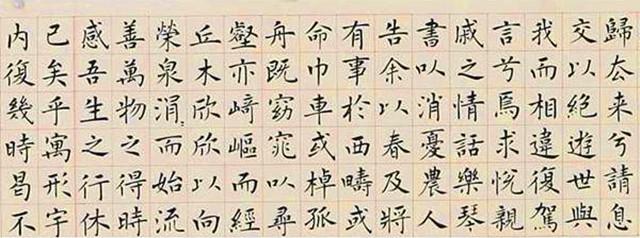 歸去来兮請息
交以絶遊世與
我而相違復駕
言兮焉求悅親
戚之情話樂琴
書以消憂農人
告余以春及將
有事於西疇或
命巾車或棹孤
舟既窈窕以尋
壑亦崎嶇而經
丘木欣欣以向
榮泉涓而始流
善萬物之得時
感吾生之行休
已矣乎寓形宇
内復幾時曷不